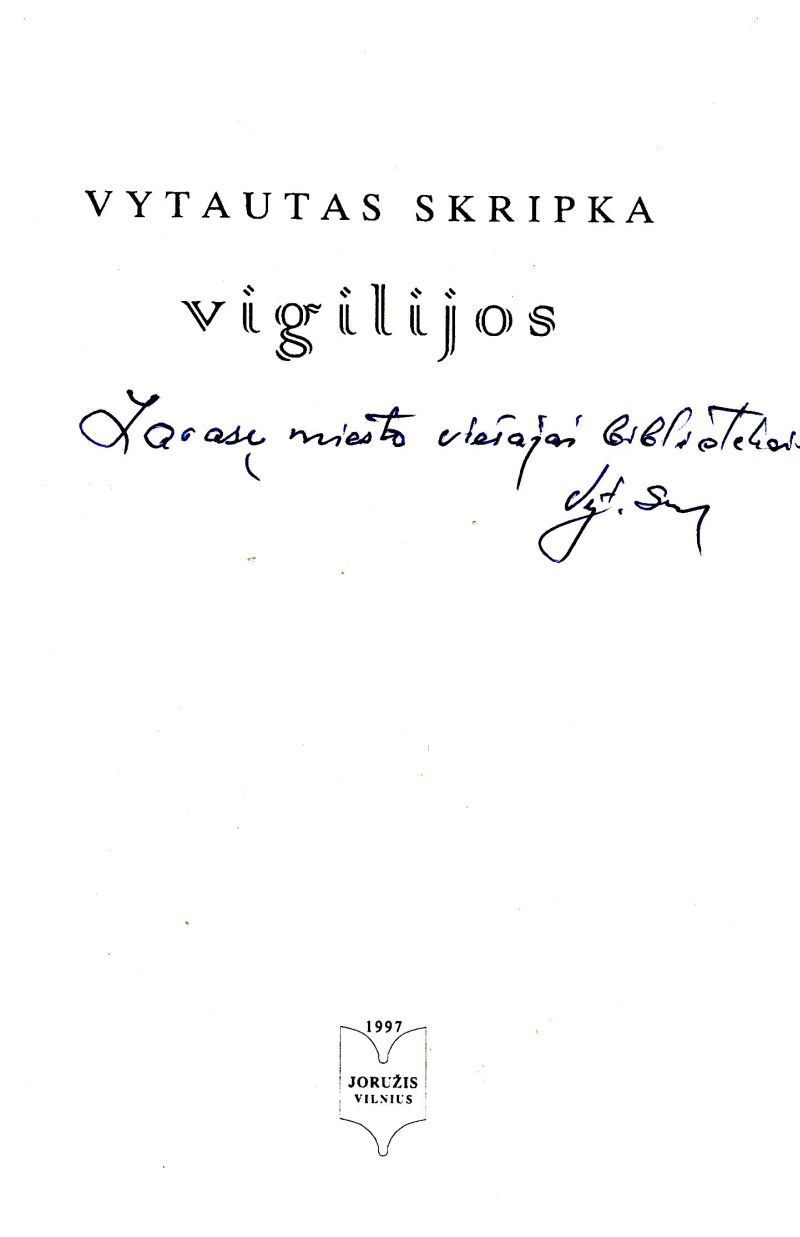 VYTAUTAS SKRIPKA
vigilijos
Zarasų miesto viešajai bibliotekai
Vyt. Skr
1997
JORUŽIS
VILNIUS